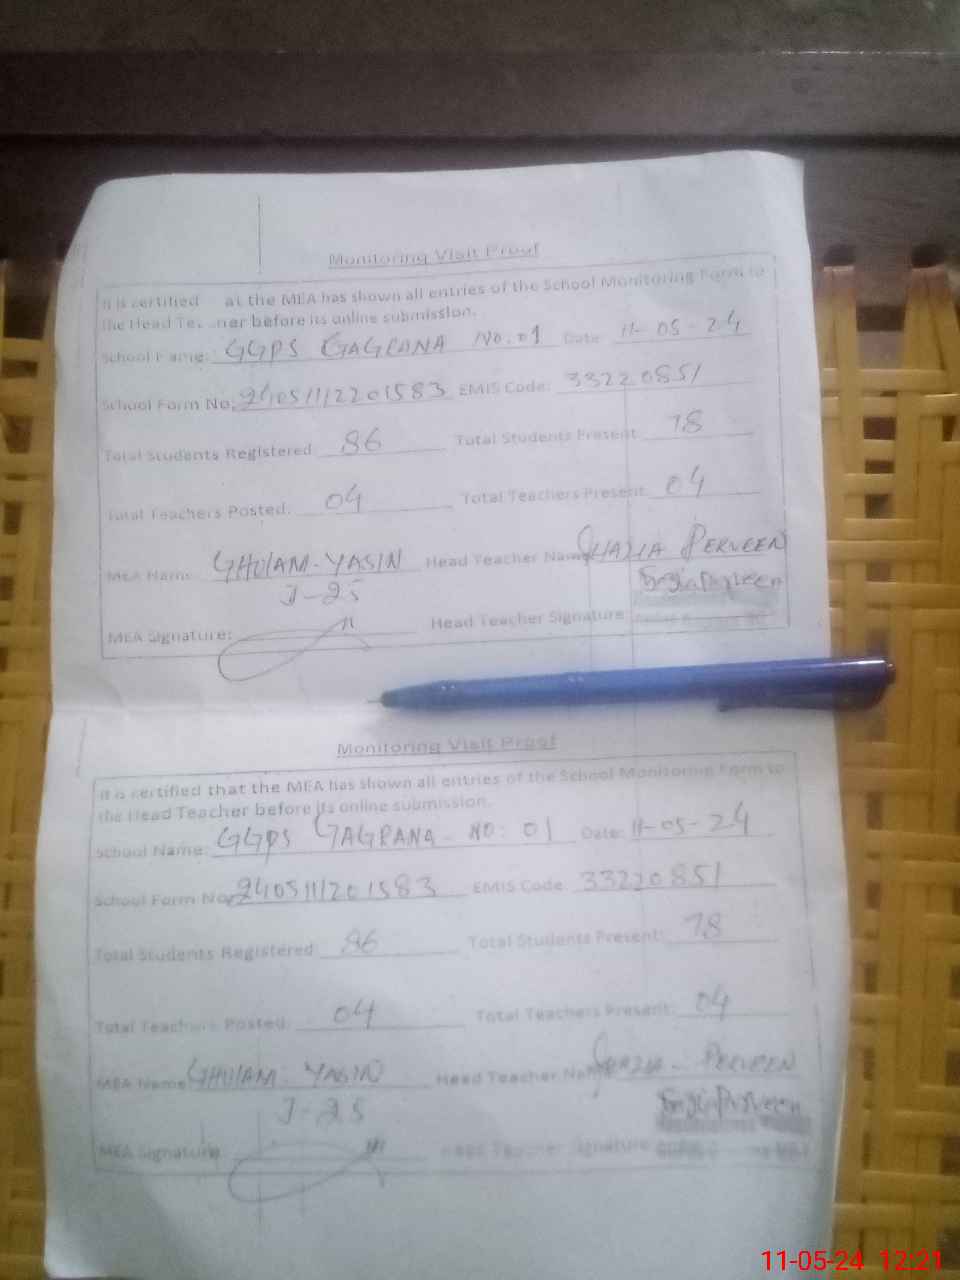 Monitoring Visit Proof
It is certified at the MEA has shown all entries of the School Monitoring Form to
the Head Te ner before its online submission.
School Name: GGPS GAGRANA NO.01 Date: 11-05-24
School Form No: 24051112201583 EMIS Code: 33220851
Total Students Registered 86 Total Students Present 78
Total Teachers Posted: 04 Total Teachers Present 04
MEA Name GHULAM-YASIN Head Teacher Name SHAZIA PERVEEN
J-25
MEA Signature: Head Teacher Signature
Monitoring Visit Proof
It is certified that the MEA has shown all entries of the School Monitoring Form to
the Head Teacher before its online submission.
School Name: GGPS GAGRANA - NO: 01 Date: 11-05-24
School Form No, 2405111201583 EMIS Code 33220851
Total Students Registered 86 Total Students Present: 78
Total Teachers Posted 04 Total Teachers Present: 04
MEA Name GHULAM YASIN Head Teacher Name SHAZIA - PERVEEN
J-25
MEA Signature: Head Teacher Signature
11-05-24 12:21